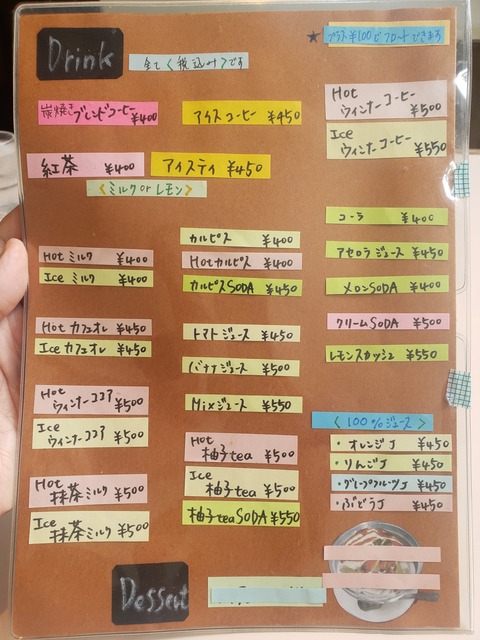 Drink
全て〈税込み〉です
★ プラス¥100でフロートできます
炭焼きブレンドコーヒー ¥400
アイスコーヒー ¥450
Hot
ウィンナーコーヒー ¥500
Ice
ウィンナーコーヒー ¥550
紅茶 ¥400
アイスティ ¥450
〈ミルク or レモン〉
Hot ミルク ¥400
Ice ミルク ¥400
Hot カフェオレ ¥450
Ice カフェオレ ¥450
Hot
ウィンナーココア ¥500
Ice
ウィンナーココア ¥500
Hot
抹茶ミルク ¥500
Ice
抹茶ミルク ¥500
カルピス ¥400
Hotカルピス ¥400
カルピスSODA ¥450
トマトジュース ¥450
バナナジュース ¥500
Mixジュース ¥550
Hot
柚子tea ¥500
Ice
柚子tea ¥500
柚子teaSODA ¥550
コーラ ¥400
アセロラジュース ¥450
メロンSODA ¥400
クリームSODA ¥500
レモンスカッシュ ¥550
〈100%ジュース〉
・オレンジJ ¥450
・りんごJ ¥450
・グレープフルーツJ ¥450
・ぶどうJ ¥450
Dessert